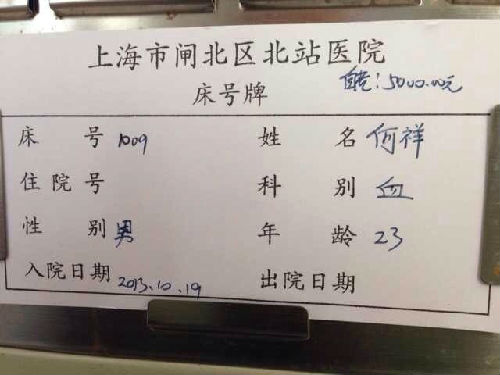 上海市闸北区北站医院
床号牌
5000.00元
床 号 1009 姓 名 何祥
住院号 科 别 血
性 别 男 年 龄 23
入院日期 2013.10.19 出院日期